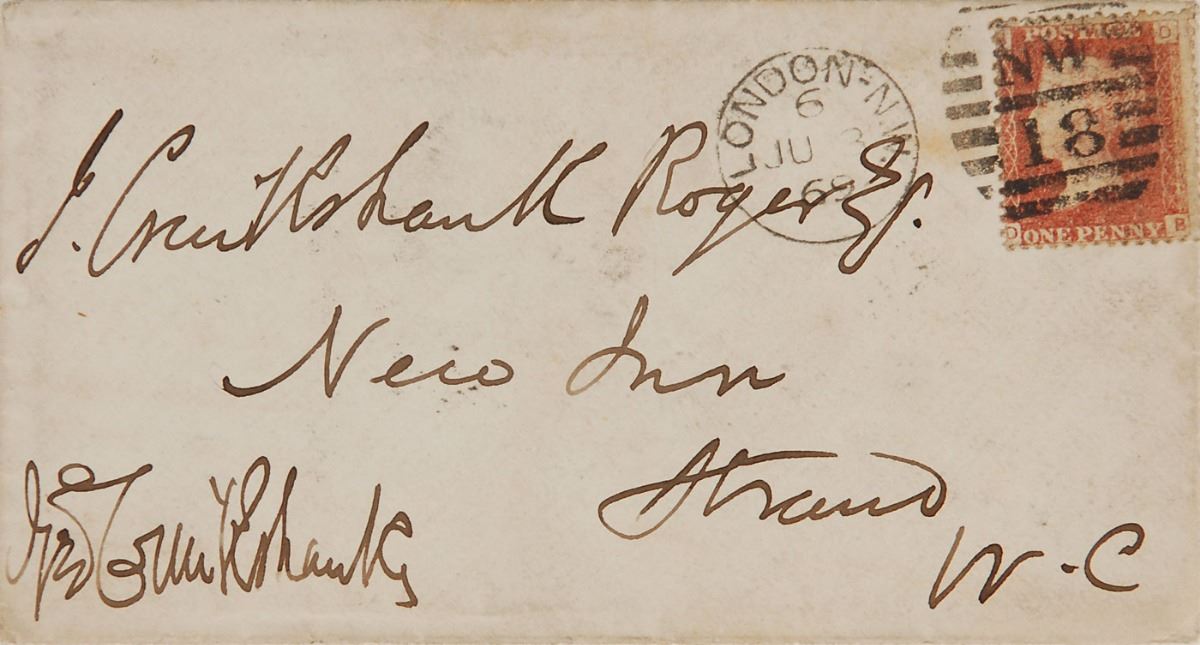 POSTAGE
LONDON-N.W
6
JU 3
69
NW
18
D
D P
ONE PENNY
J. Cruikshank Roger Esq.
New Inn
Strand
W.C
Geo Cruikshank